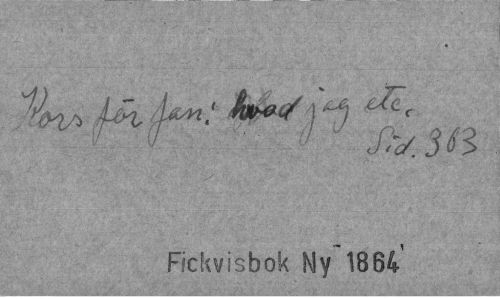 Kors för fan! hvad jag etc.
Sid. 363
Fickvisbok Ny 1864